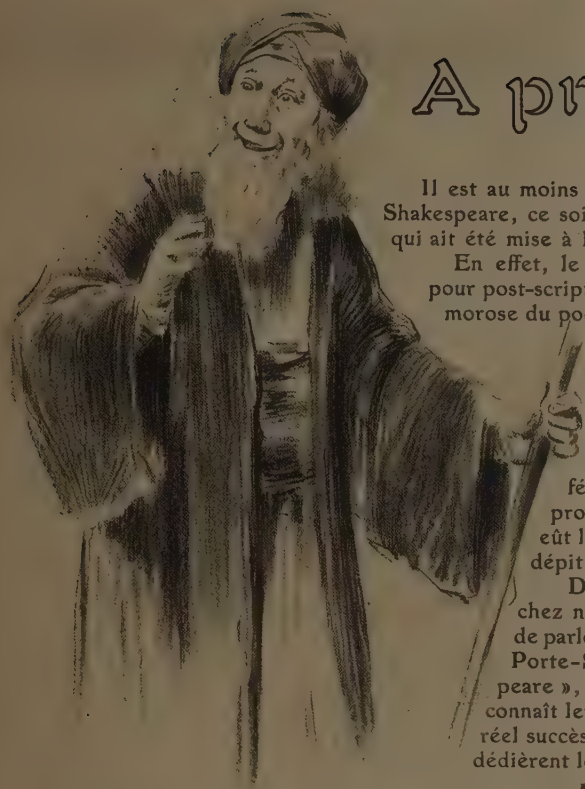 A pr
Il est au moins
Shakespeare, ce soi
qui ait été mise à l
En effet, le
pour post-script
morose du po
fé
pro
eût l
dépit
D
chez n
de parl
Porte-S
peare »,
connaît le
réel succès
dédièrent l